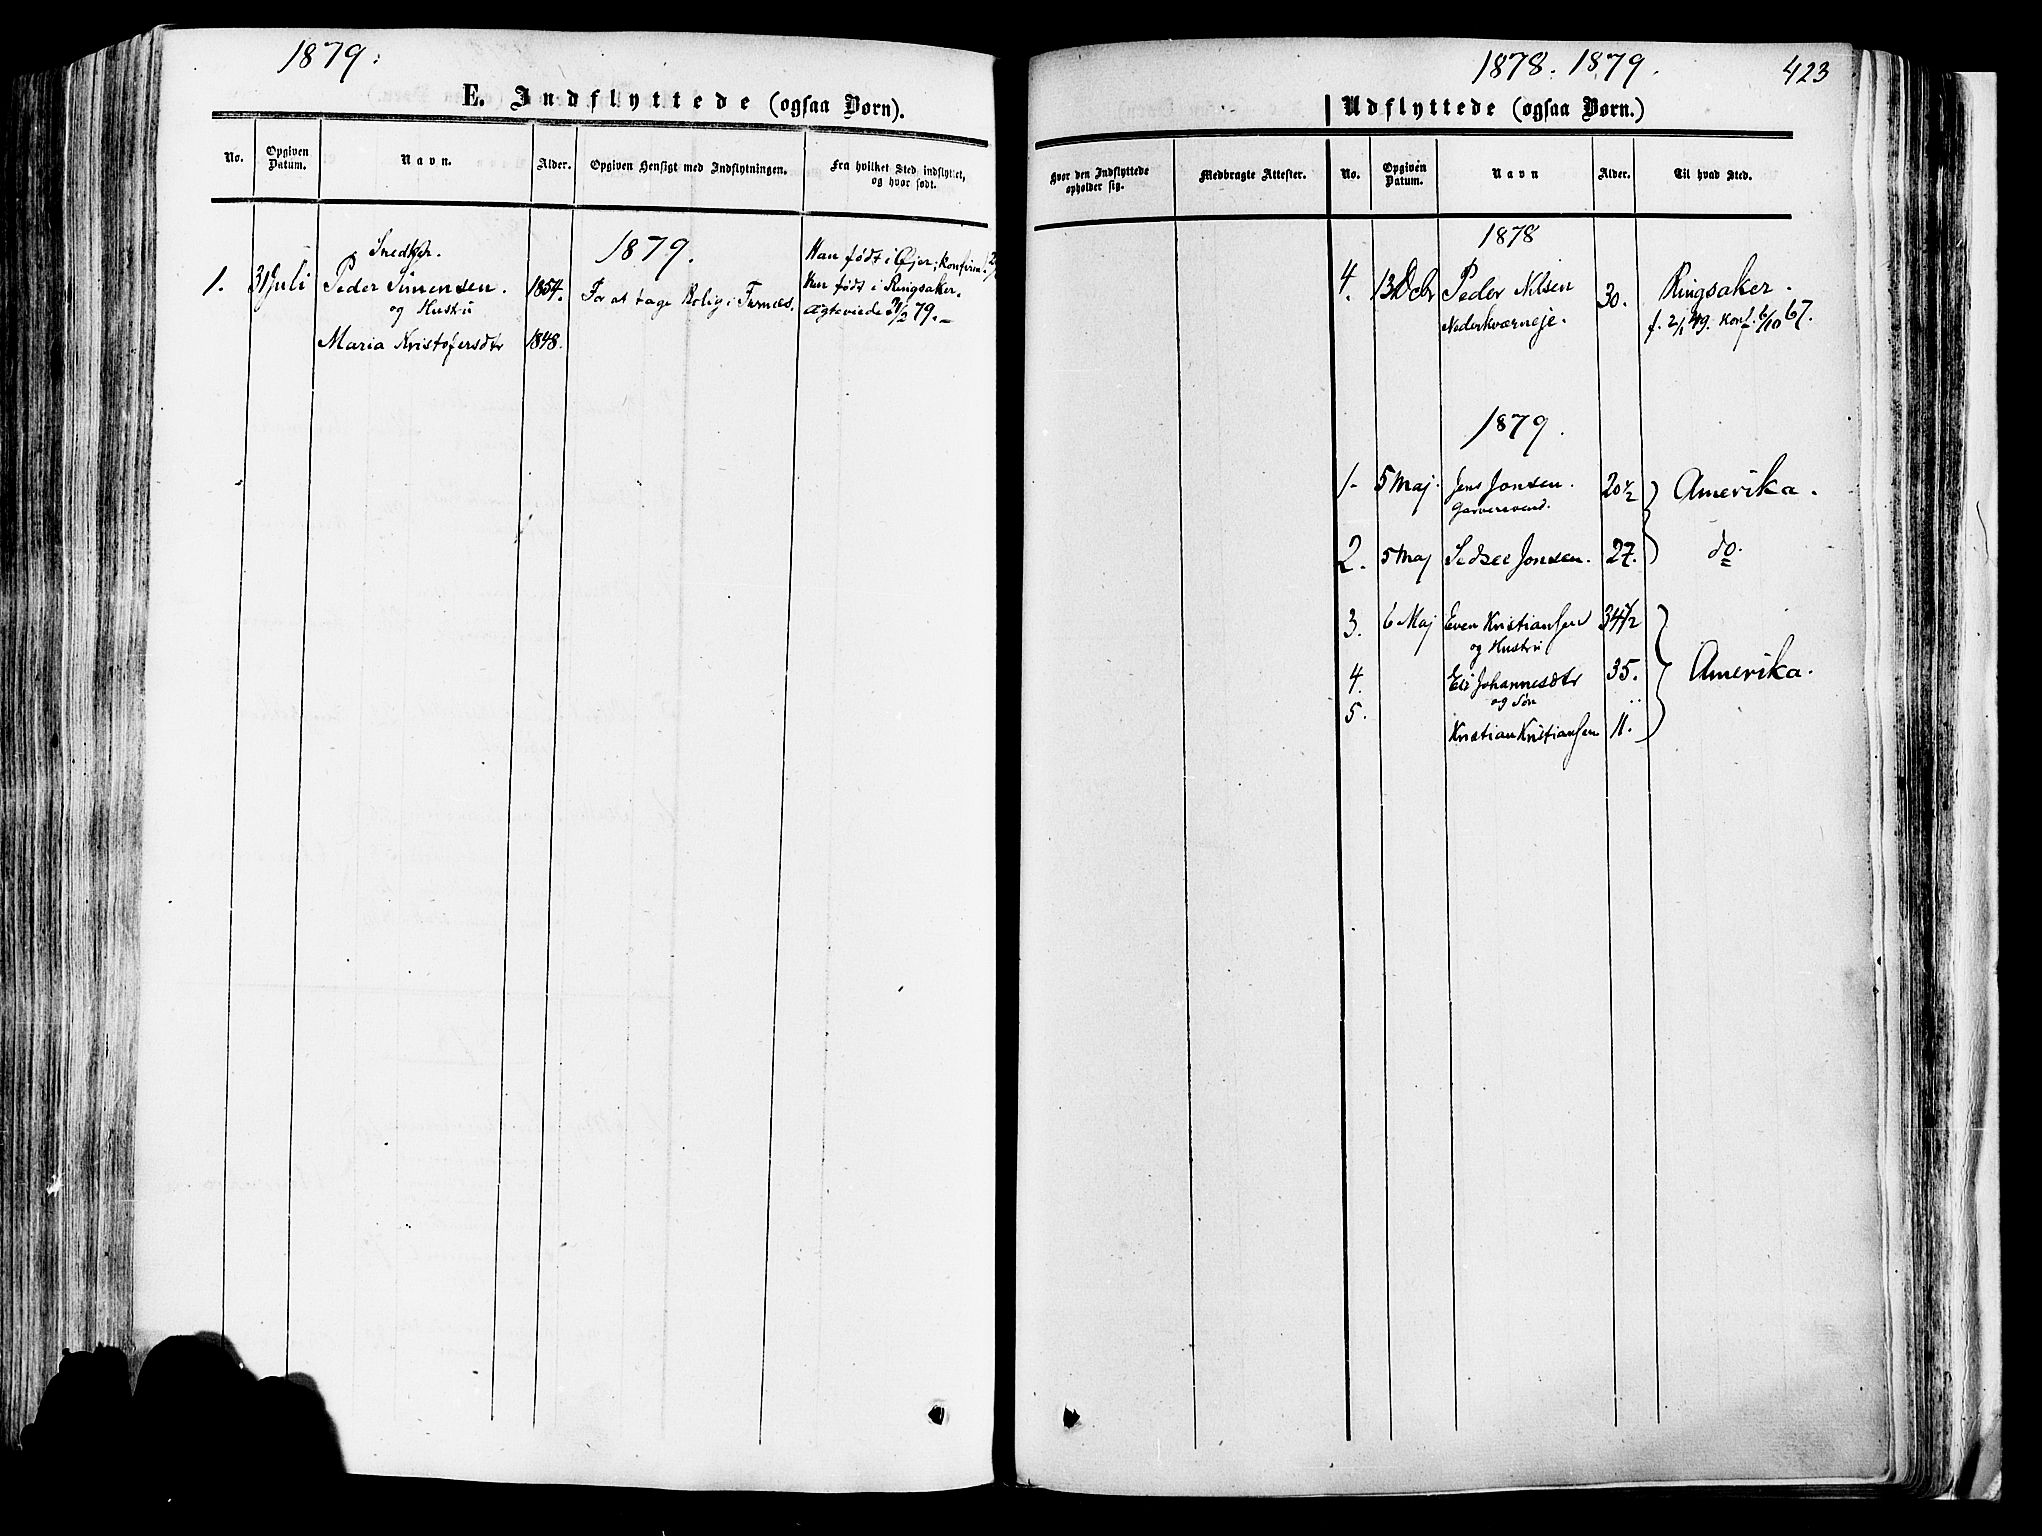 1879.
E. Indflyttede (ogsaa Børn).
No.
Opgiven Datum.
Navn.
Alder.
Opgiven Hensigt med Indflytningen.
Fra hvilket Sted indflyttet, og hvor født.
1879.
1.
31 Juli
Snedker.
Peder Simensen.
og Hustru
Maria Kristofersdtr
1854.
1848.
For at tage Bolig i Furnæs.
Han født i Øjer; konfirm.
Hun født i Ringsaker.
Ægteviede 79.
1878. 1879.
423
Udflyttede (ogsaa Børn.)
Hvor den Indflyttede opholder sig.
Medbragte Attester.
No.
Opgiven Datum.
Navn
Alder.
Til hvad Sted.
1878
4. 13 Dcbr Peder Nilsen 30. Ringsaker.
Nederkværneje. f. 2/1 49. konf. 6/10 67.
1879.
1. 5 Maj. Jens Jonsen. 20 1/2 Amerika.
Garversvend.
2. 5 Maj Jonsen. 27. do.
3. 6 Maj Even Kristiansen 34 1/2
og Hustru
4. Eli Johannesdtr 35. Amerika.
og Søn
5. Kristian Kristiansen 11.